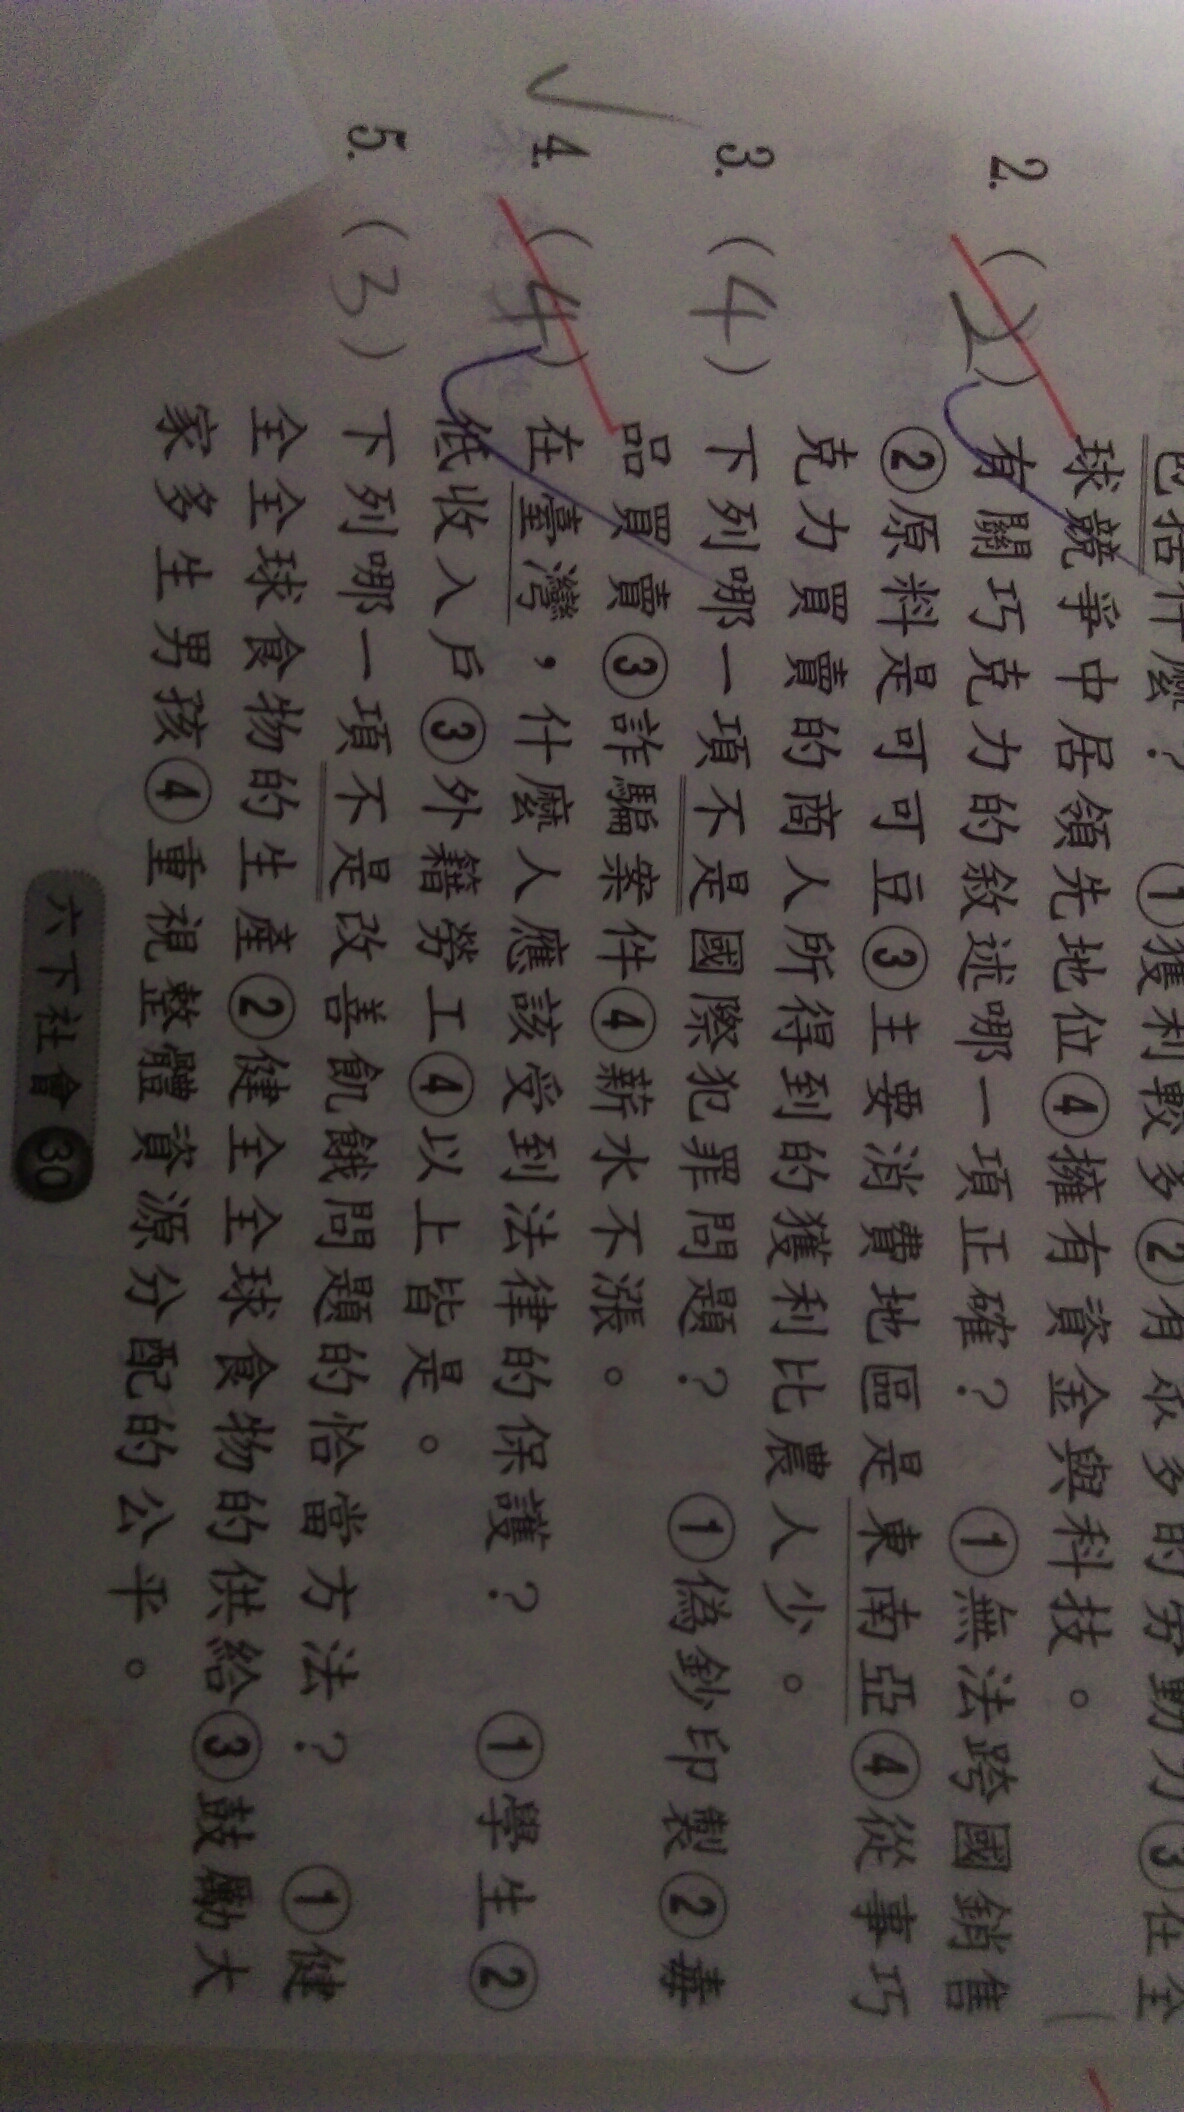 包括什麼？ ①獲利較多②有眾多的勞動力③在全
球競爭中居領先地位④擁有資金與科技。
2. (2) 有關巧克力的敘述哪一項正確？ ①無法跨國銷售
②原料是可可豆③主要消費地區是東南亞④從事巧
克力買賣的商人所得到的獲利比農人少。
3. (4) 下列哪一項不是國際犯罪問題？ ①偽鈔印製②毒
品買賣③詐騙案件④薪水不漲。
4. (4) 在臺灣，什麼人應該受到法律的保護？ ①學生②
低收入戶③外籍勞工④以上皆是。
5. (3) 下列哪一項不是改善飢餓問題的恰當方法？ ①健
全全球食物的生產②健全全球食物的供給③鼓勵大
家多生男孩④重視整體資源分配的公平。
六下社會 30